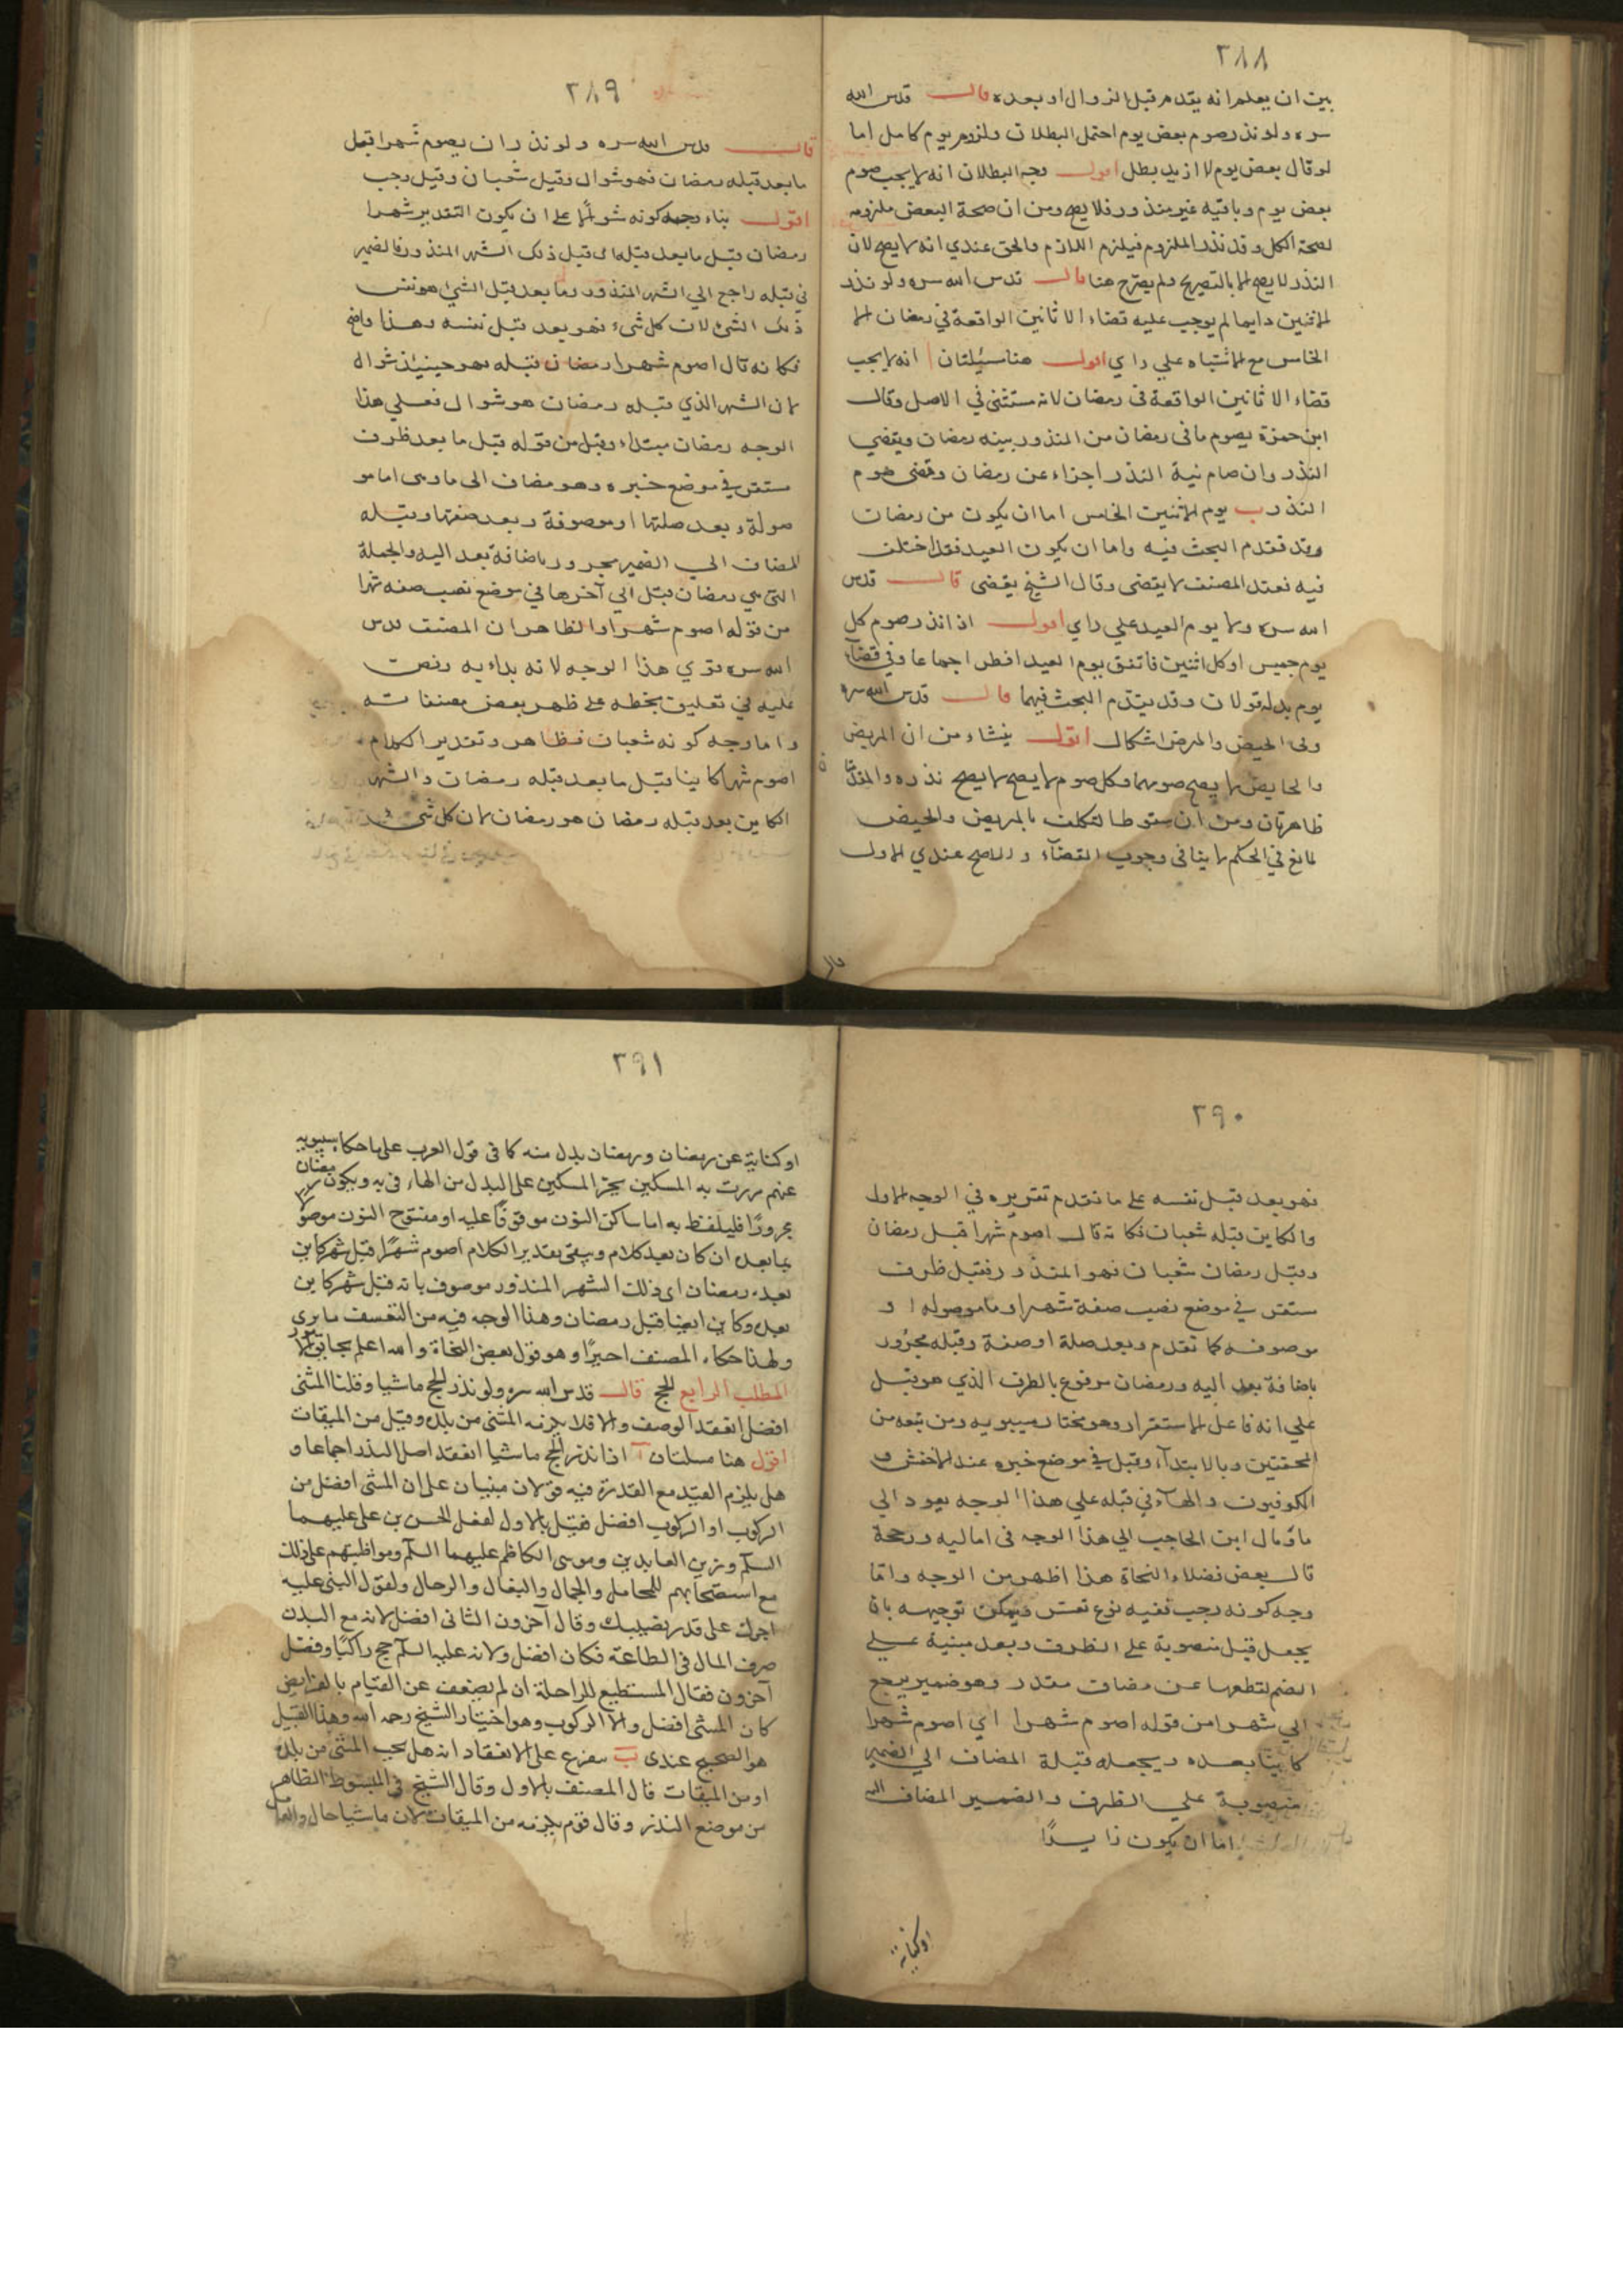 ٢٨٨
بين ان يعلم انه يقدم قبل الزوال او بعده قال قدس الله
سره ولو نذر صوم بعض يوم احتمل البطلان ولزوم يوم كامل اما
لو قال بعض يوم لا ازيد بطل اقول وجه البطلان انه لا يجب صوم
بعض يوم وباقيه غير منذور فلا يصح ومن ان صحة البعض ملزومه
لصحة الكل وقد نذر الملزوم فيلزم اللازم والحق عندي انه لا يصح لان
النذر لا يصح الا بالتصريح ولم يصرح هنا قال قدس الله سره ولو نذر
الاثنين دايما لم يوجب عليه قضاء الاثانين الواقعة في رمضان الا
الخامس مع الاشتباه علي راي اقول هنا مسئلتان ا انه لا يجب
قضاء الاثانين الواقعة في رمضان لانه مستثنى في الاصل وقال
ابن حمزة يصوم ما في رمضان من المنذور بنية رمضان ويقضي
النذر وان صام نية النذر اجزاء عن رمضان وقضى صوم
النذر ب يوم الاثنين الخامس اما ان يكون من رمضان
وقد تقدم البحث فيه واما ان يكون العيد فقد اختلف
فيه فعند المصنف لا يقضى وقال الشيخ يقضى قال قدس
الله سره ولا يوم العيد علي راي اقول اذا نذر صوم كل
يوم خميس او كل اثنين فاتفق يوم العيد افطر اجماعا وفي قضاء
يوم بدله قولان وقد يتقدم البحث فيهما قال قدس الله سره
وفى الحيض والمرض اشكال اقول ينشاء من ان المريض
والحايض لا يصح صومهما وكل صوم لا يصح لا يصح نذره والمقدمتان
ظاهرتان ومن ان سقوط التكلف بالمريض والحيض
لمانع في الحكم لا ينافى وجوب القضاء والاصح عندي الاول
قال
٢٨٩
قال قدس الله سره ولو نذر ان يصوم شهرا قبل
ما بعد قبله رمضان فهو شوال وقيل شعبان وقيل رجب
اقول بناء وجه كونه شوالا على ان يكون التقدير شهرا
رمضان قبل ما بعد قبله اى قبل ذلك الشهر المنذور فالضمير
في قبله راجع الي الشهر المنذور وما بعد قبل الشئ هو نفس
ذلك الشئ لان كل شيء فهو بعد قبل نفسه وهذا واضح
فكانه قال اصوم شهرا رمضان قبله فهو حينئذ شوال
لان الشهر الذي قبله رمضان هو شوال فعلى هذا
الوجه رمضان مبتداء وقبل من قوله قبل ما بعد ظرف
مستقر في موضع خبره وهو مضاف الى ما وهى اما مو
صولة وبعد صلتها او موصوفة وبعد صفتها وقبله
المضاف الي الضمير مجرور باضافة بعد اليه والجملة
التى هي رمضان قبل الى آخرها في موضع نصب صفه شهرا
من قوله اصوم شهرا والظاهر ان المصنف قدس
الله سره قوي هذا الوجه لانه بداء به ونص
عليه في تعليق بخطه على ظهر بعض مصنفاته
واما وجه كونه شعبان فظاهر وتقدير الكلام
اصوم شهرا كاينا قبل ما بعد قبله رمضان والشهر
الكاين بعد قبله رمضان هو رمضان لان كل شئ
٢٩٠
فهو بعد قبل نفسه على ما تقدم تقريره في الوجه الاول
والكاين قبله شعبان فكانه قال اصوم شهرا قبل رمضان
وقبل رمضان شعبان فهو المنذور فقبل ظرف
مستقر في موضع نصب صفة شهرا وما موصوله او
موصوفه كما تقدم وبعد صلة او صفة وقبله مجرور
باضافة بعد اليه ورمضان مرفوع بالظرف الذي هو قبل
علي انه فاعل الاستقرار وهو مختار سيبويه ومن تبعه من
المحققين وبالابتداء وقبل في موضع خبره عند الاخفش و
الكوفيون والهاء في قبله علي هذا الوجه يعود الي
ما ومال ابن الحاجب الي هذا الوجه في اماليه ورجحه
قال بعض فضلاء النحاة هذا اظهر من الوجه واما
وجه كونه رجب ففيه نوع تعسر ويمكن توجيهه بان
يجعل قبل منصوبة على الظرف وبعد مبنية علي
الضم لقطعها عن مضاف مقدر وهو ضمير يرجع
الي شهرا من قوله اصوم شهرا اي اصوم شهرا
كاينا بعده ويجعل قبلة المضاف الي الضمير
منصوبة علي الظرف والضمير المضاف اليه
اما ان يكون زايدا
او كناية
٢٩١
او كناية عن رمضان ورمضان بدل منه كما في قول العرب على ما حكاه سيبويه
عنهم مررت به المسكين بجر المسكين على البدل من الهاء في به ويكون رمضان
مجرورا فليلفظ به اما ساكن النون موقوفا عليه او مفتوح النون موصولا
بما بعده ان كان بعد كلام ويبقى تقدير الكلام اصوم شهرا قبل شهر كاين
بعده رمضان اى ذلك الشهر المنذور موصوف بانه قبل شهر كاين
بعده وكاين ايضا قبل رمضان وهذا الوجه فيه من التعسف ما يرى
ولهذا حكاه المصنف اخيرا وهو قول بعض النحاة والله اعلم بحقايق الامور
المطلب الرابع الحج قال قدس الله سره ولو نذر الحج ماشيا وقلنا المشى
افضل انعقد الوصف والا فلا يلزمه المشى من بلده وقيل من الميقات
اقول هنا مسلتان آ اذا نذر الحج ماشيا انعقد اصل النذر اجماعا و
هل يلزم القيد مع القدرة فيه قولان مبنيان على ان المشى افضل من
الركوب او الركوب افضل فقيل بالاول لفعل الحسن بن على عليهما
السلم وزين العابدين وموسى الكاظم عليهما السلم ومواظبتهم على ذلك
مع استصحابهم للمحامل والجمال والبغال والرحال ولقول النبى عليه
اجرك على قدر نصيبك وقال آخرون الثانى افضل لانه مع البدن
صرف المال في الطاعة فكان افضل ولانه عليه السلم حج راكبا وفصل
آخرون فقال المستطيع للراحلة ان لم يضعف عن القيام بالفرايض
كان المشى افضل والا الركوب وهو اختيار الشيخ رحمه الله وهذا القبيل
هو الصحيح عندى ب مفرع على الانعقاد انه هل يجب المشى من بلده
او من الميقات قال المصنف بالاول وقال الشيخ في المبسوط الظاهر
من موضع النذر وقال قوم يلزمه من الميقات لان ماشيا حال والعامل